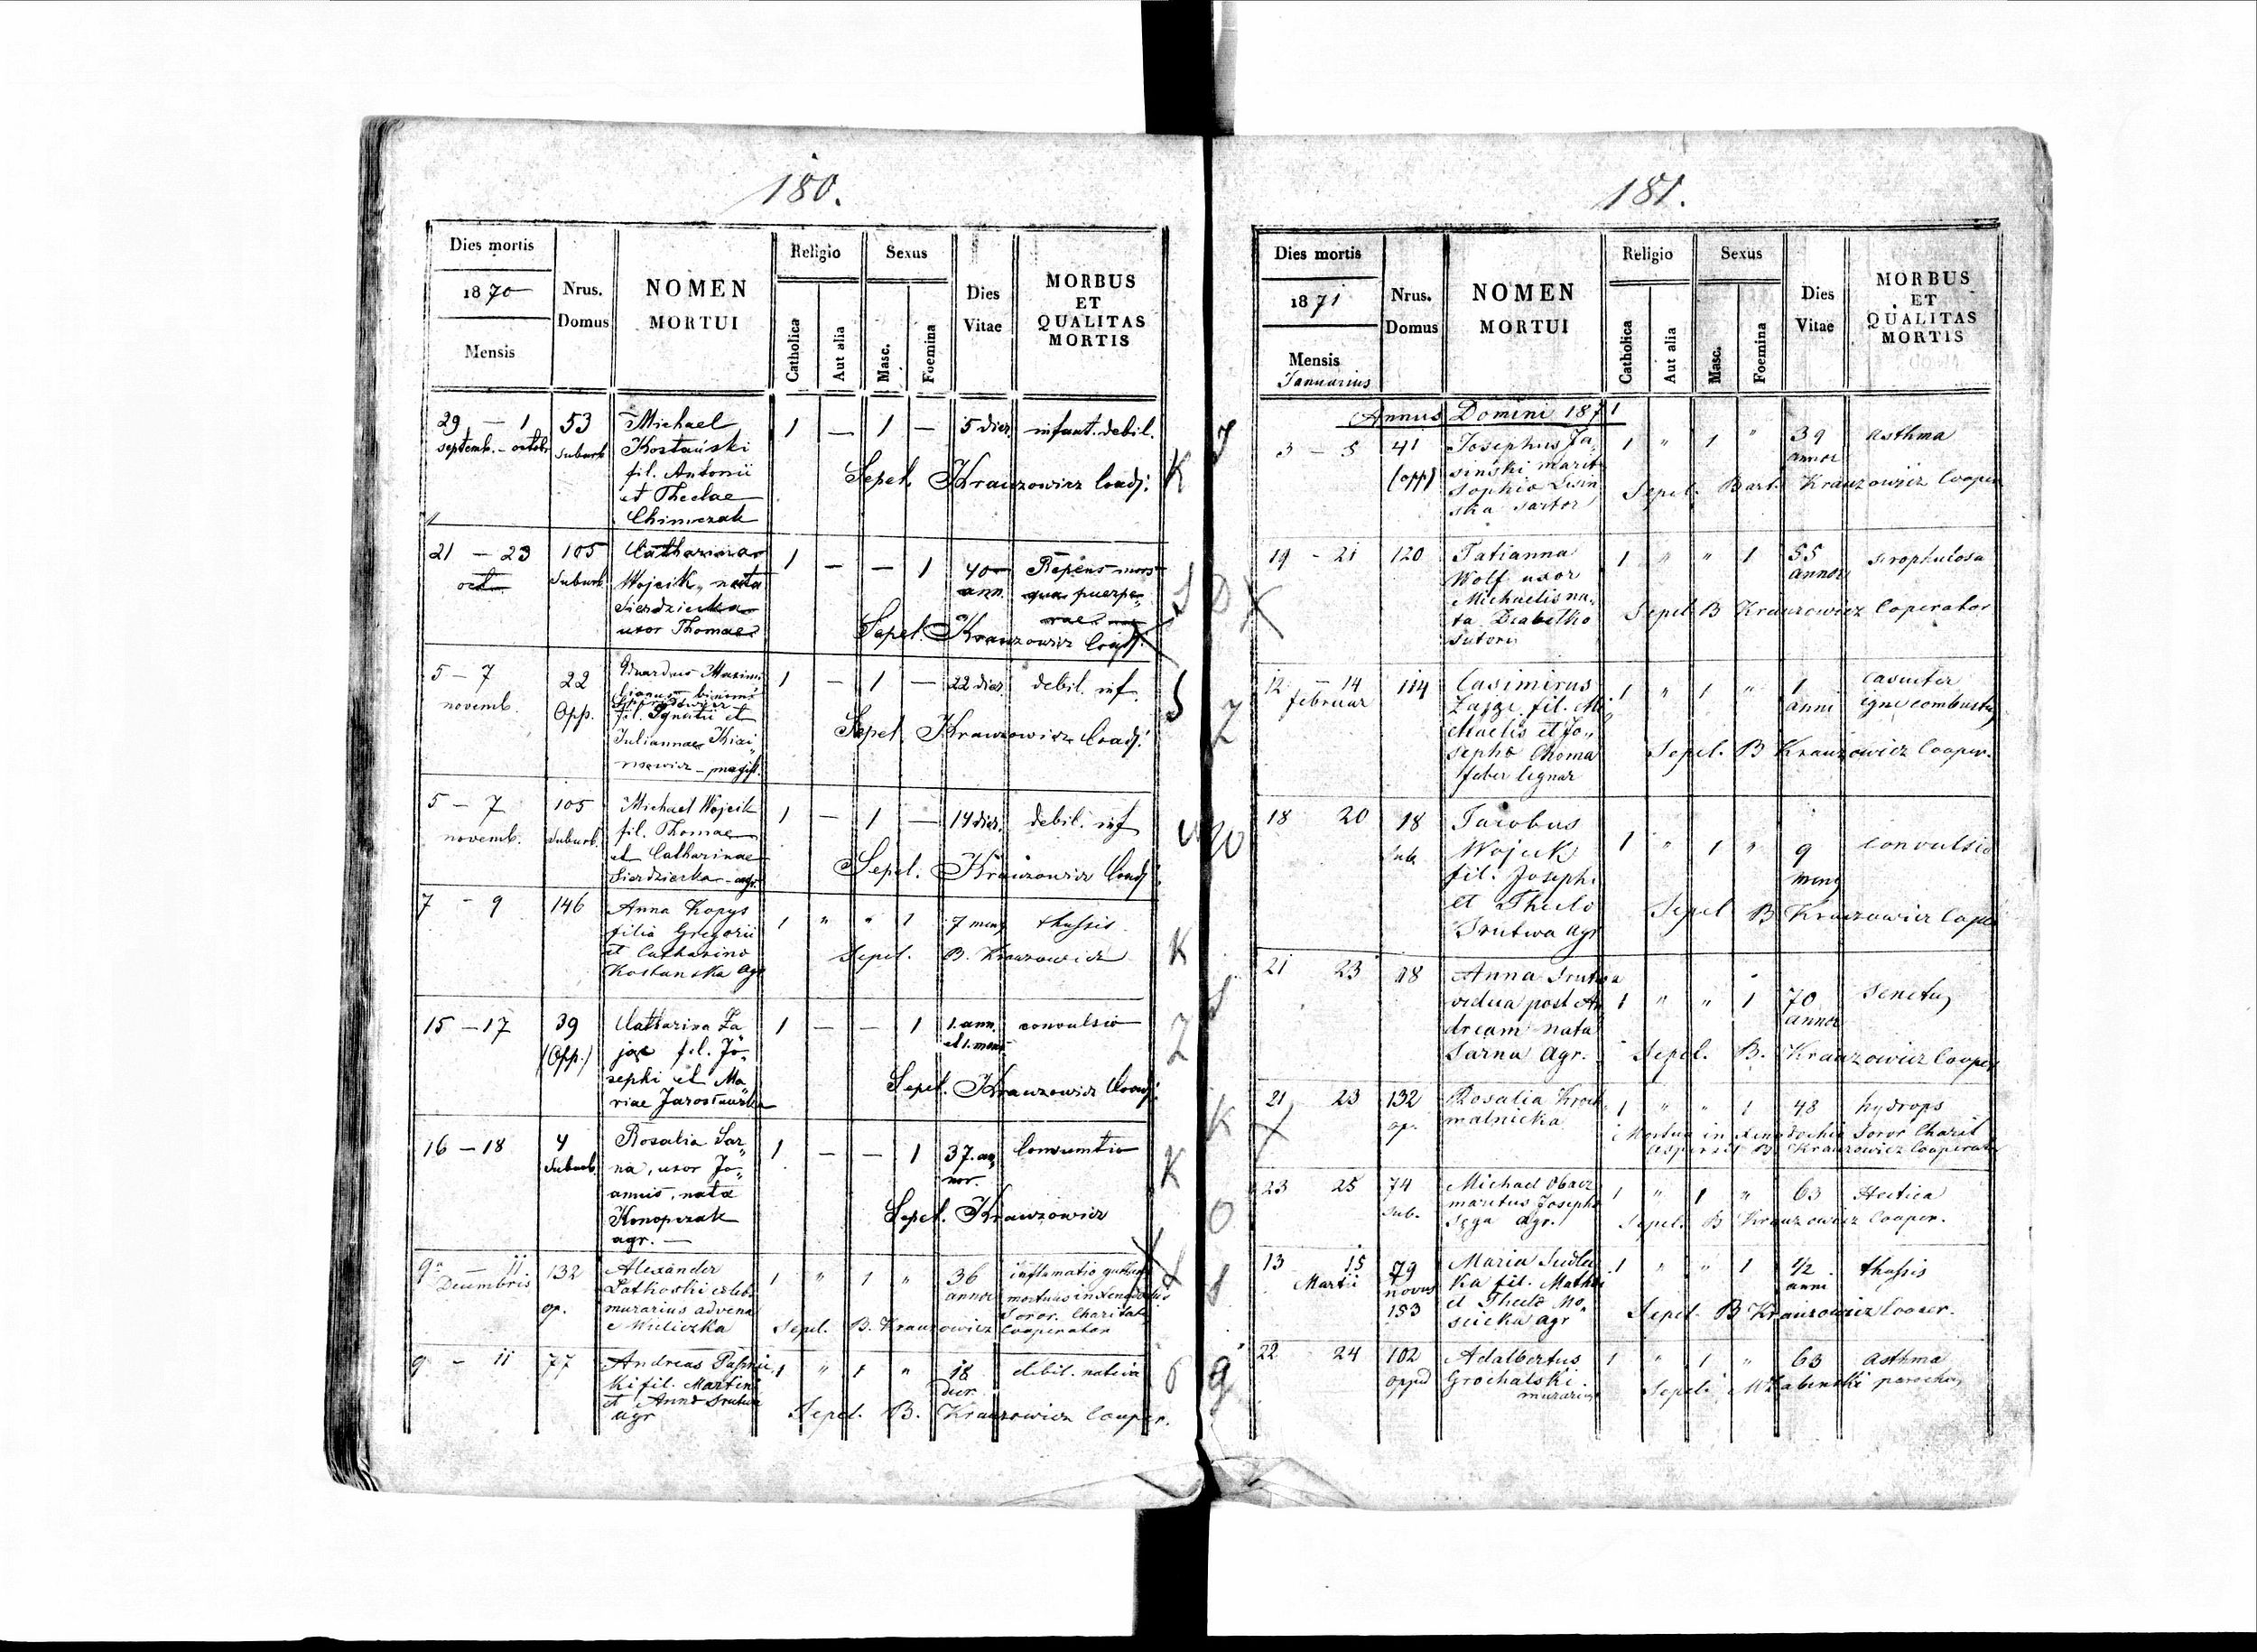 180.
Dies mortis
1870
Mensis
Nrus.
Domus
NOMEN
MORTUI
Religio
Catholica
Aut alia
Sexus
Masc.
Foemina
Dies
Vitae
MORBUS
ET
QUALITAS
MORTIS
29 — 1 53 Michael 1 — 1 — 5 dier. infant. debil.
septemb. - octobr suburb Kostański
fil. Antonii Sepel. Krauzowicz Coadj. K
et Theclae
Chimczak
21 — 23 105 Catharina 1 — — 1 40 Repens mors
oct suburb. Wojcik, nata ann. qua puerpe„
Sierdziecka rae
uxor Thomae Sepel. Krauzowicz Coadj. S
5 — 7 22 Eduardus Maximi 1 — 1 — 22 dier. debil. inf.
novemb. Opp. lianus binomi
fil. Ignatii et S
Juliannae Sepel. Krauzowicz Coadj.
5 — 7 105 Michael Wojcik 1 — 1 — 14 dier. debil. inf
novemb. suburb. fil. Thomae
et Catharinae Sepel. Krauzowicz Coadj.
Sierdziecka - agr.
7 - 9 146 Anna Kopys 1 " " 1 7 mens thussis.
filia Gregorii
et Catharina Sepel. B. Krauzowicz K
Kostanska Agr
15 — 17 39 Catharina Za 1 — — 1 1. ann. convulsio
(Opp.) jąc fil. Jo„ et 1. mens. Z
sephi et Ma„ Sepel. Krauzowicz Coadj.
riae Jarosławska
16 — 18 4 Rosalia Sar„ 1 — — 1 37. an„ Consumtio
suburb. na, uxor Jo„ nor. K
annis, nata Sepel. Krauzowicz
Konopczak
agr. —
9 — 11. 132 Alexander 1 " 1 " 36 inflamatio
Decembris op. celebs annor mortuus in
murarius advena Soror. Charitat
e Wieliczka Sepel. B. Krauzowicz Cooperator
9 - 11 77 Andreas 1 " 1 " 18 debil. nativa
ki fil. Martini dier
et Anna Srutwa Sepel. B. Krauzowicz Cooper.
agr
181.
Dies mortis
1871
Mensis
Januarius
Nrus.
Domus
NOMEN
MORTUI
Religio
Catholica
Aut alia
Sexus
Masc.
Foemina
Dies
Vitae
MORBUS
ET
QUALITAS
MORTIS
Annus Domini 1871
J 3 — 5 41 Josephus Ja„ 1 " 1 " 39 asthma
(opp) sinski marit annor
Sophia Sepel. Bart. Krauzowicz Cooper
ska sartor
D 19 - 21 120 Tatianna 1 " " 1 55 scrophulosa
Wolf uxor annor
Michaelis na„ Sepel. B Krauzowicz Coperator
ta
sutoris
Z 12 — 14 114 Casimirus 1 " 1 " 1 casueter
februar Zając fil. Mi anni igne combustus
chaelis et Jo„
sepha Choma Sepel. B Krauzowicz Cooper.
faber lignar
W 18 20 18 Jacobus
sub. Wojcik 1 " 1 " 9 convulsio
fil. Josephi mens
et Thecla Sepel B Krauzowicz Coper
Srutwa Agr
S 21 23 18 Anna Srutwa
vidua post An 1 " " 1 70 senetus
dream nata annor
Sarna Agr. Sepel. B. Krauzowicz Cooper
K 21 23 132 Rosalia Kroch 1 " " 1 48 hydrops
op. malnicka Mortua in Xenodochio Soror Charit
aspersit B Krauzowicz Cooperator
O 23 25 74 Michael Obacz 1 " 1 " 63 Hectica
sub. maritus Josepha
agr. Sepel. B Krauzowicz Cooper.
S 13 15 79 Maria Sudlec 1 " " 1 1/2 thussis
Martii novus ka fil. Mathia anni
153 et Thecla Mo„ Sepel. B Krauzowicz Cooper.
scicka agr
G 22 24 102 Adalbertus 1 " 1 " 63 asthma
oppid Grochalski. Sepel. parochus
murarius